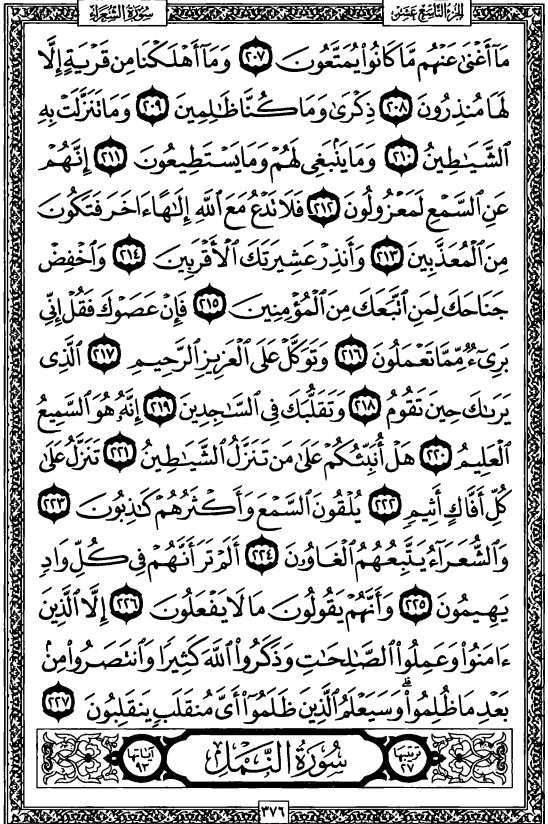 الجزء التاسع عشر
سورة الشعراء
مَآ أَغْنَىٰ عَنْهُم مَّا كَانُوا۟ يُمَتَّعُونَ ٢٠٧ وَمَآ أَهْلَكْنَا مِن قَرْيَةٍ إِلَّا
لَهَا مُنذِرُونَ ٢٠٨ ذِكْرَىٰ وَمَا كُنَّا ظَٰلِمِينَ ٢٠٩ وَمَا تَنَزَّلَتْ بِهِ
ٱلشَّيَٰطِينُ ٢١٠ وَمَا يَنۢبَغِى لَهُمْ وَمَا يَسْتَطِيعُونَ ٢١١ إِنَّهُمْ
عَنِ ٱلسَّمْعِ لَمَعْزُولُونَ ٢١٢ فَلَا تَدْعُ مَعَ ٱللَّهِ إِلَٰهًا ءَاخَرَ فَتَكُونَ
مِنَ ٱلْمُعَذَّبِينَ ٢١٣ وَأَنذِرْ عَشِيرَتَكَ ٱلْأَقْرَبِينَ ٢١٤ وَٱخْفِضْ
جَنَاحَكَ لِمَنِ ٱتَّبَعَكَ مِنَ ٱلْمُؤْمِنِينَ ٢١٥ فَإِنْ عَصَوْكَ فَقُلْ إِنِّى
بَرِىٓءٌ مِّمَّا تَعْمَلُونَ ٢١٦ وَتَوَكَّلْ عَلَى ٱلْعَزِيزِ ٱلرَّحِيمِ ٢١٧ ٱلَّذِى
يَرَىٰكَ حِينَ تَقُومُ ٢١٨ وَتَقَلُّبَكَ فِى ٱلسَّٰجِدِينَ ٢١٩ إِنَّهُۥ هُوَ ٱلسَّمِيعُ
ٱلْعَلِيمُ ٢٢٠ هَلْ أُنَبِّئُكُمْ عَلَىٰ مَن تَنَزَّلُ ٱلشَّيَٰطِينُ ٢٢١ تَنَزَّلُ عَلَىٰ
كُلِّ أَفَّاكٍ أَثِيمٍ ٢٢٢ يُلْقُونَ ٱلسَّمْعَ وَأَكْثَرُهُمْ كَٰذِبُونَ ٢٢٣
وَٱلشُّعَرَآءُ يَتَّبِعُهُمُ ٱلْغَاوُۥنَ ٢٢٤ أَلَمْ تَرَ أَنَّهُمْ فِى كُلِّ وَادٍ
يَهِيمُونَ ٢٢٥ وَأَنَّهُمْ يَقُولُونَ مَا لَا يَفْعَلُونَ ٢٢٦ إِلَّا ٱلَّذِينَ
ءَامَنُوا۟ وَعَمِلُوا۟ ٱلصَّٰلِحَٰتِ وَذَكَرُوا۟ ٱللَّهَ كَثِيرًا وَٱنتَصَرُوا۟ مِنۢ
بَعْدِ مَا ظُلِمُوا۟ ۗ وَسَيَعْلَمُ ٱلَّذِينَ ظَلَمُوٓا۟ أَىَّ مُنقَلَبٍ يَنقَلِبُونَ ٢٢٧
ترتيبها ٢٧
سورة النمل
آياتها ٩٣
٣٧٦